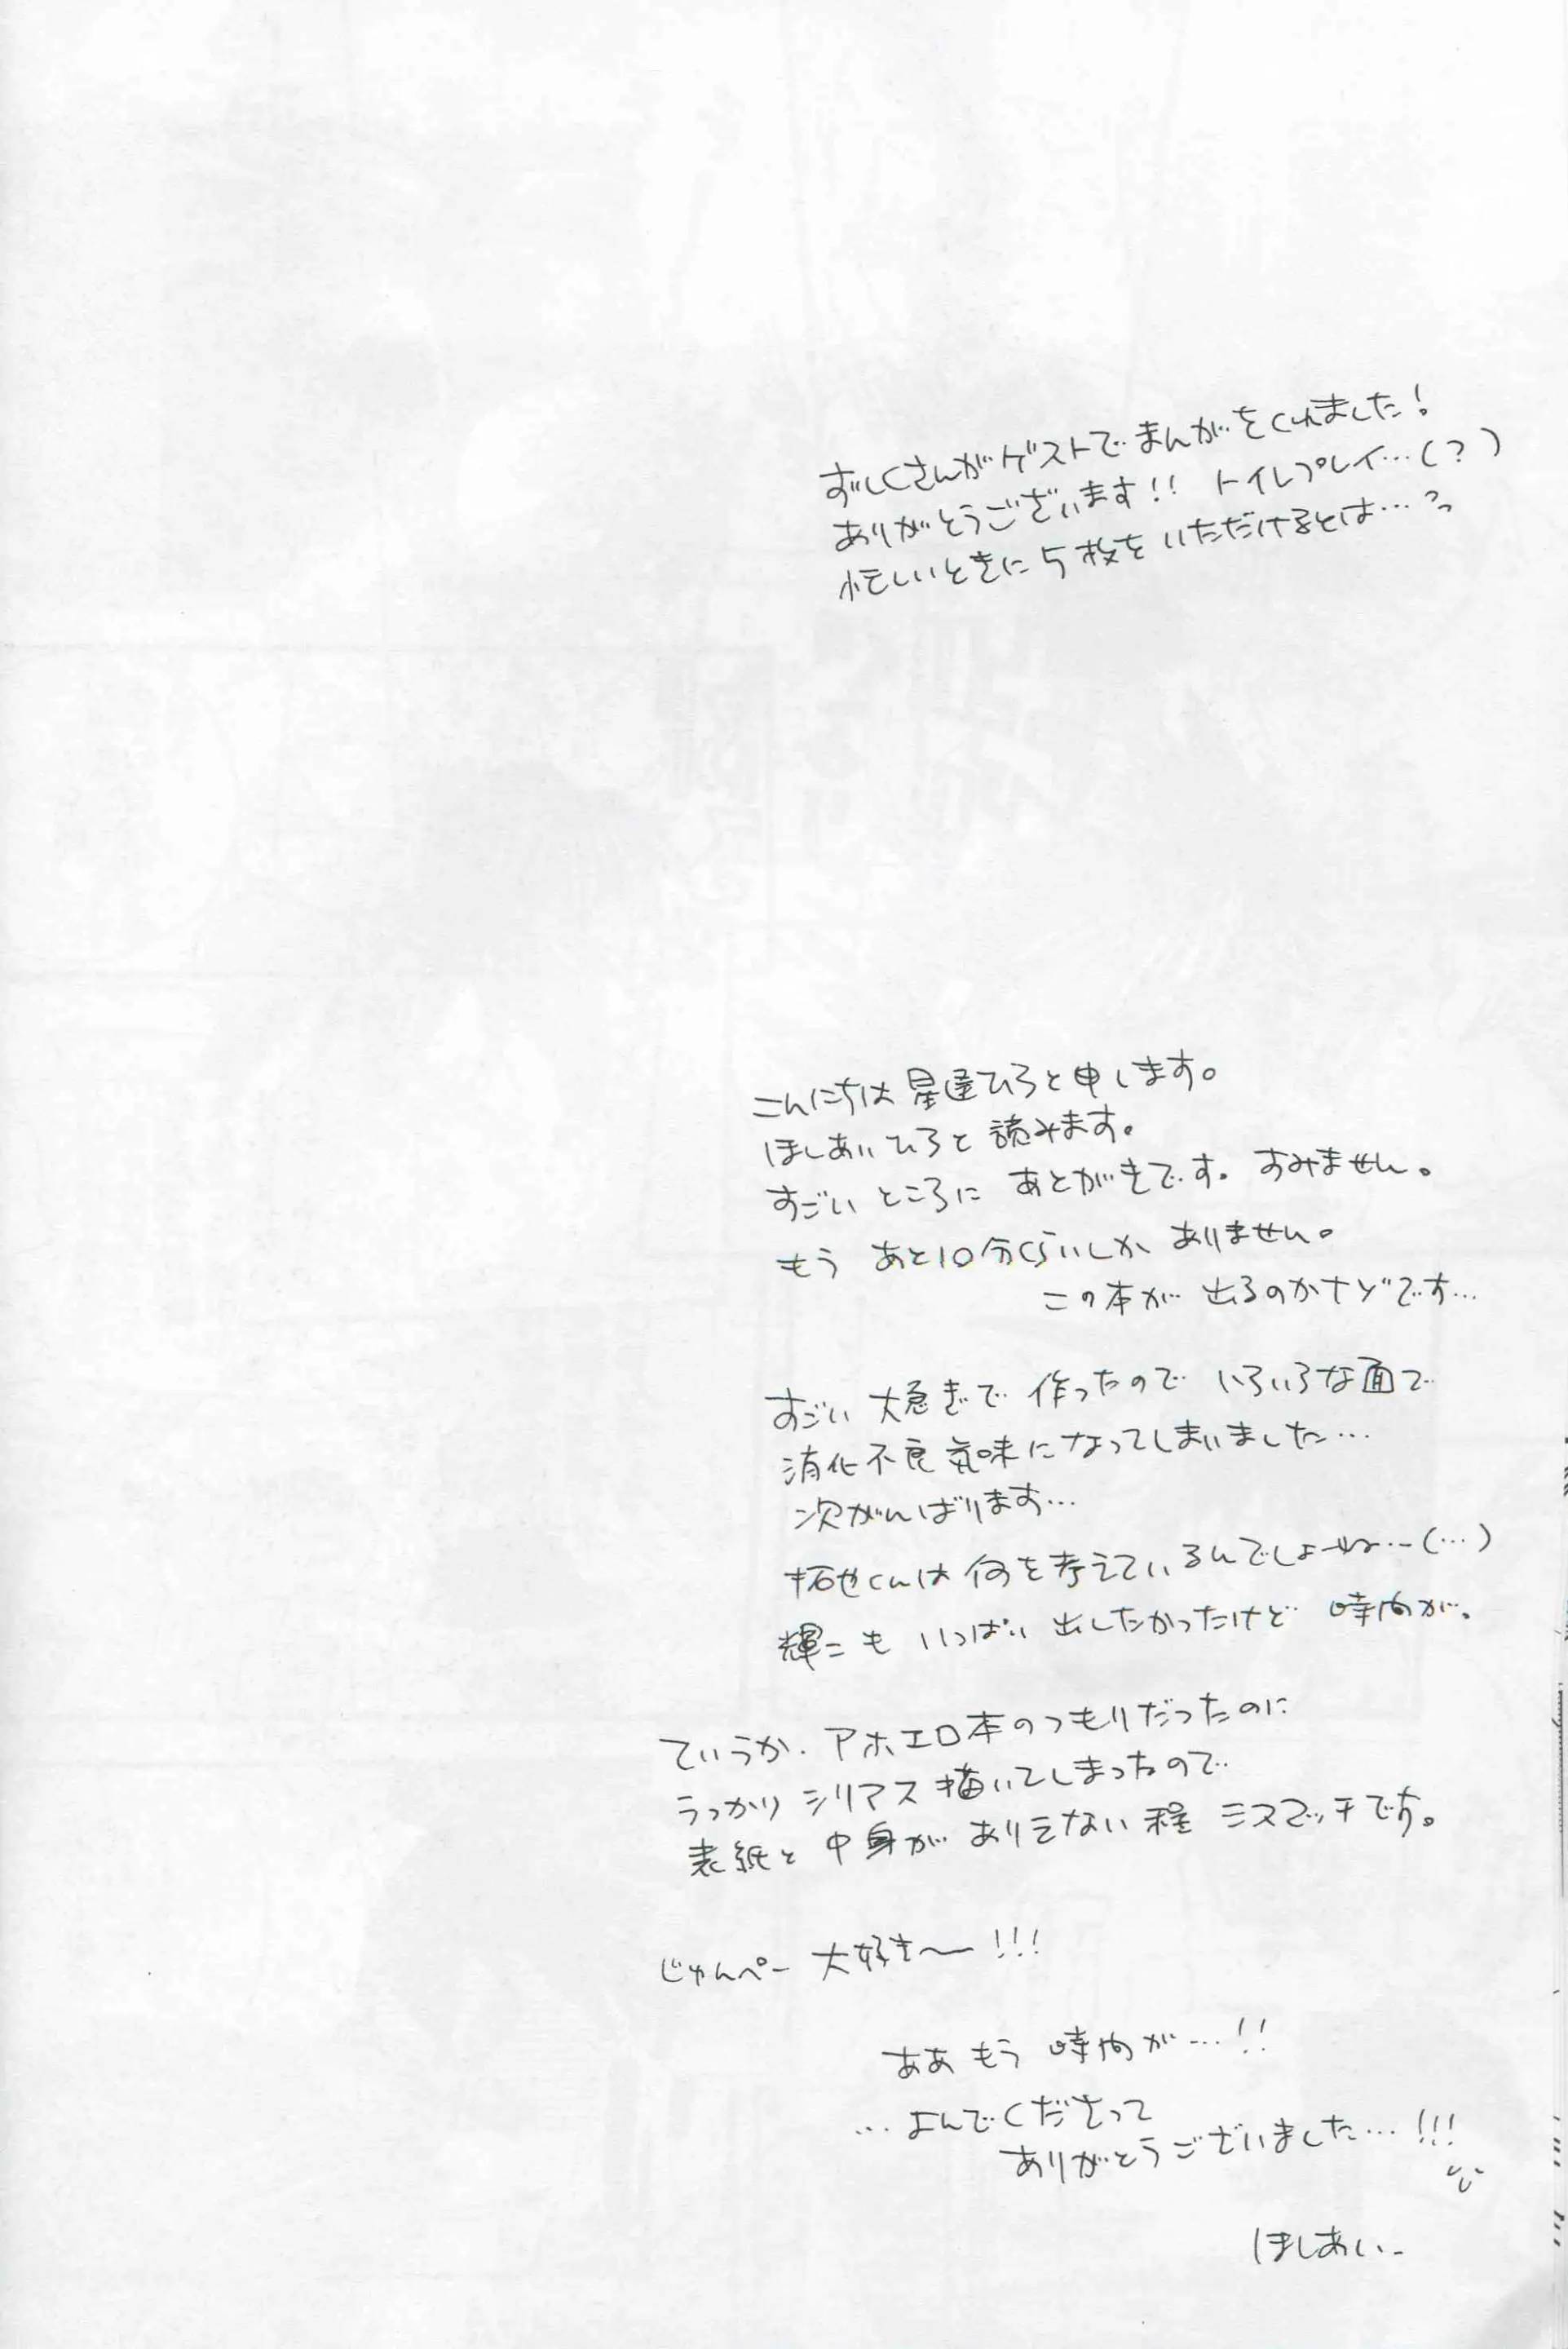 ずしくさんがゲストでまんがをくれました!
ありがとうございます!! トイレプレイ…(?)
忙しいときに5枚をいただけるとは…
こんにちは 星逢ひろと申します。
ほしあいひろと 読みます。
すごい ところに あとがきです。 すみません。
もう あと10分くらいしか ありません。
この本が 出るのかナゾです…
すごい 大急ぎで 作ったので いろいろな面で
消化不良気味になってしまいました…
次がんばります…
拓也くんは 何を考えているんでしょーね…(…)
輝二も いっぱい 出したかったけど 時間が。
ていうか. アホエロ本のつもりだったのに
うっかり シリアス 描いてしまったので
表紙と 中身が ありえない程 ミスマッチです。
じゅんぺー 大好き〜!!!
ああ もう 時間が…!!
…よんでくださって
ありがとうございました…!!!
ほしあい